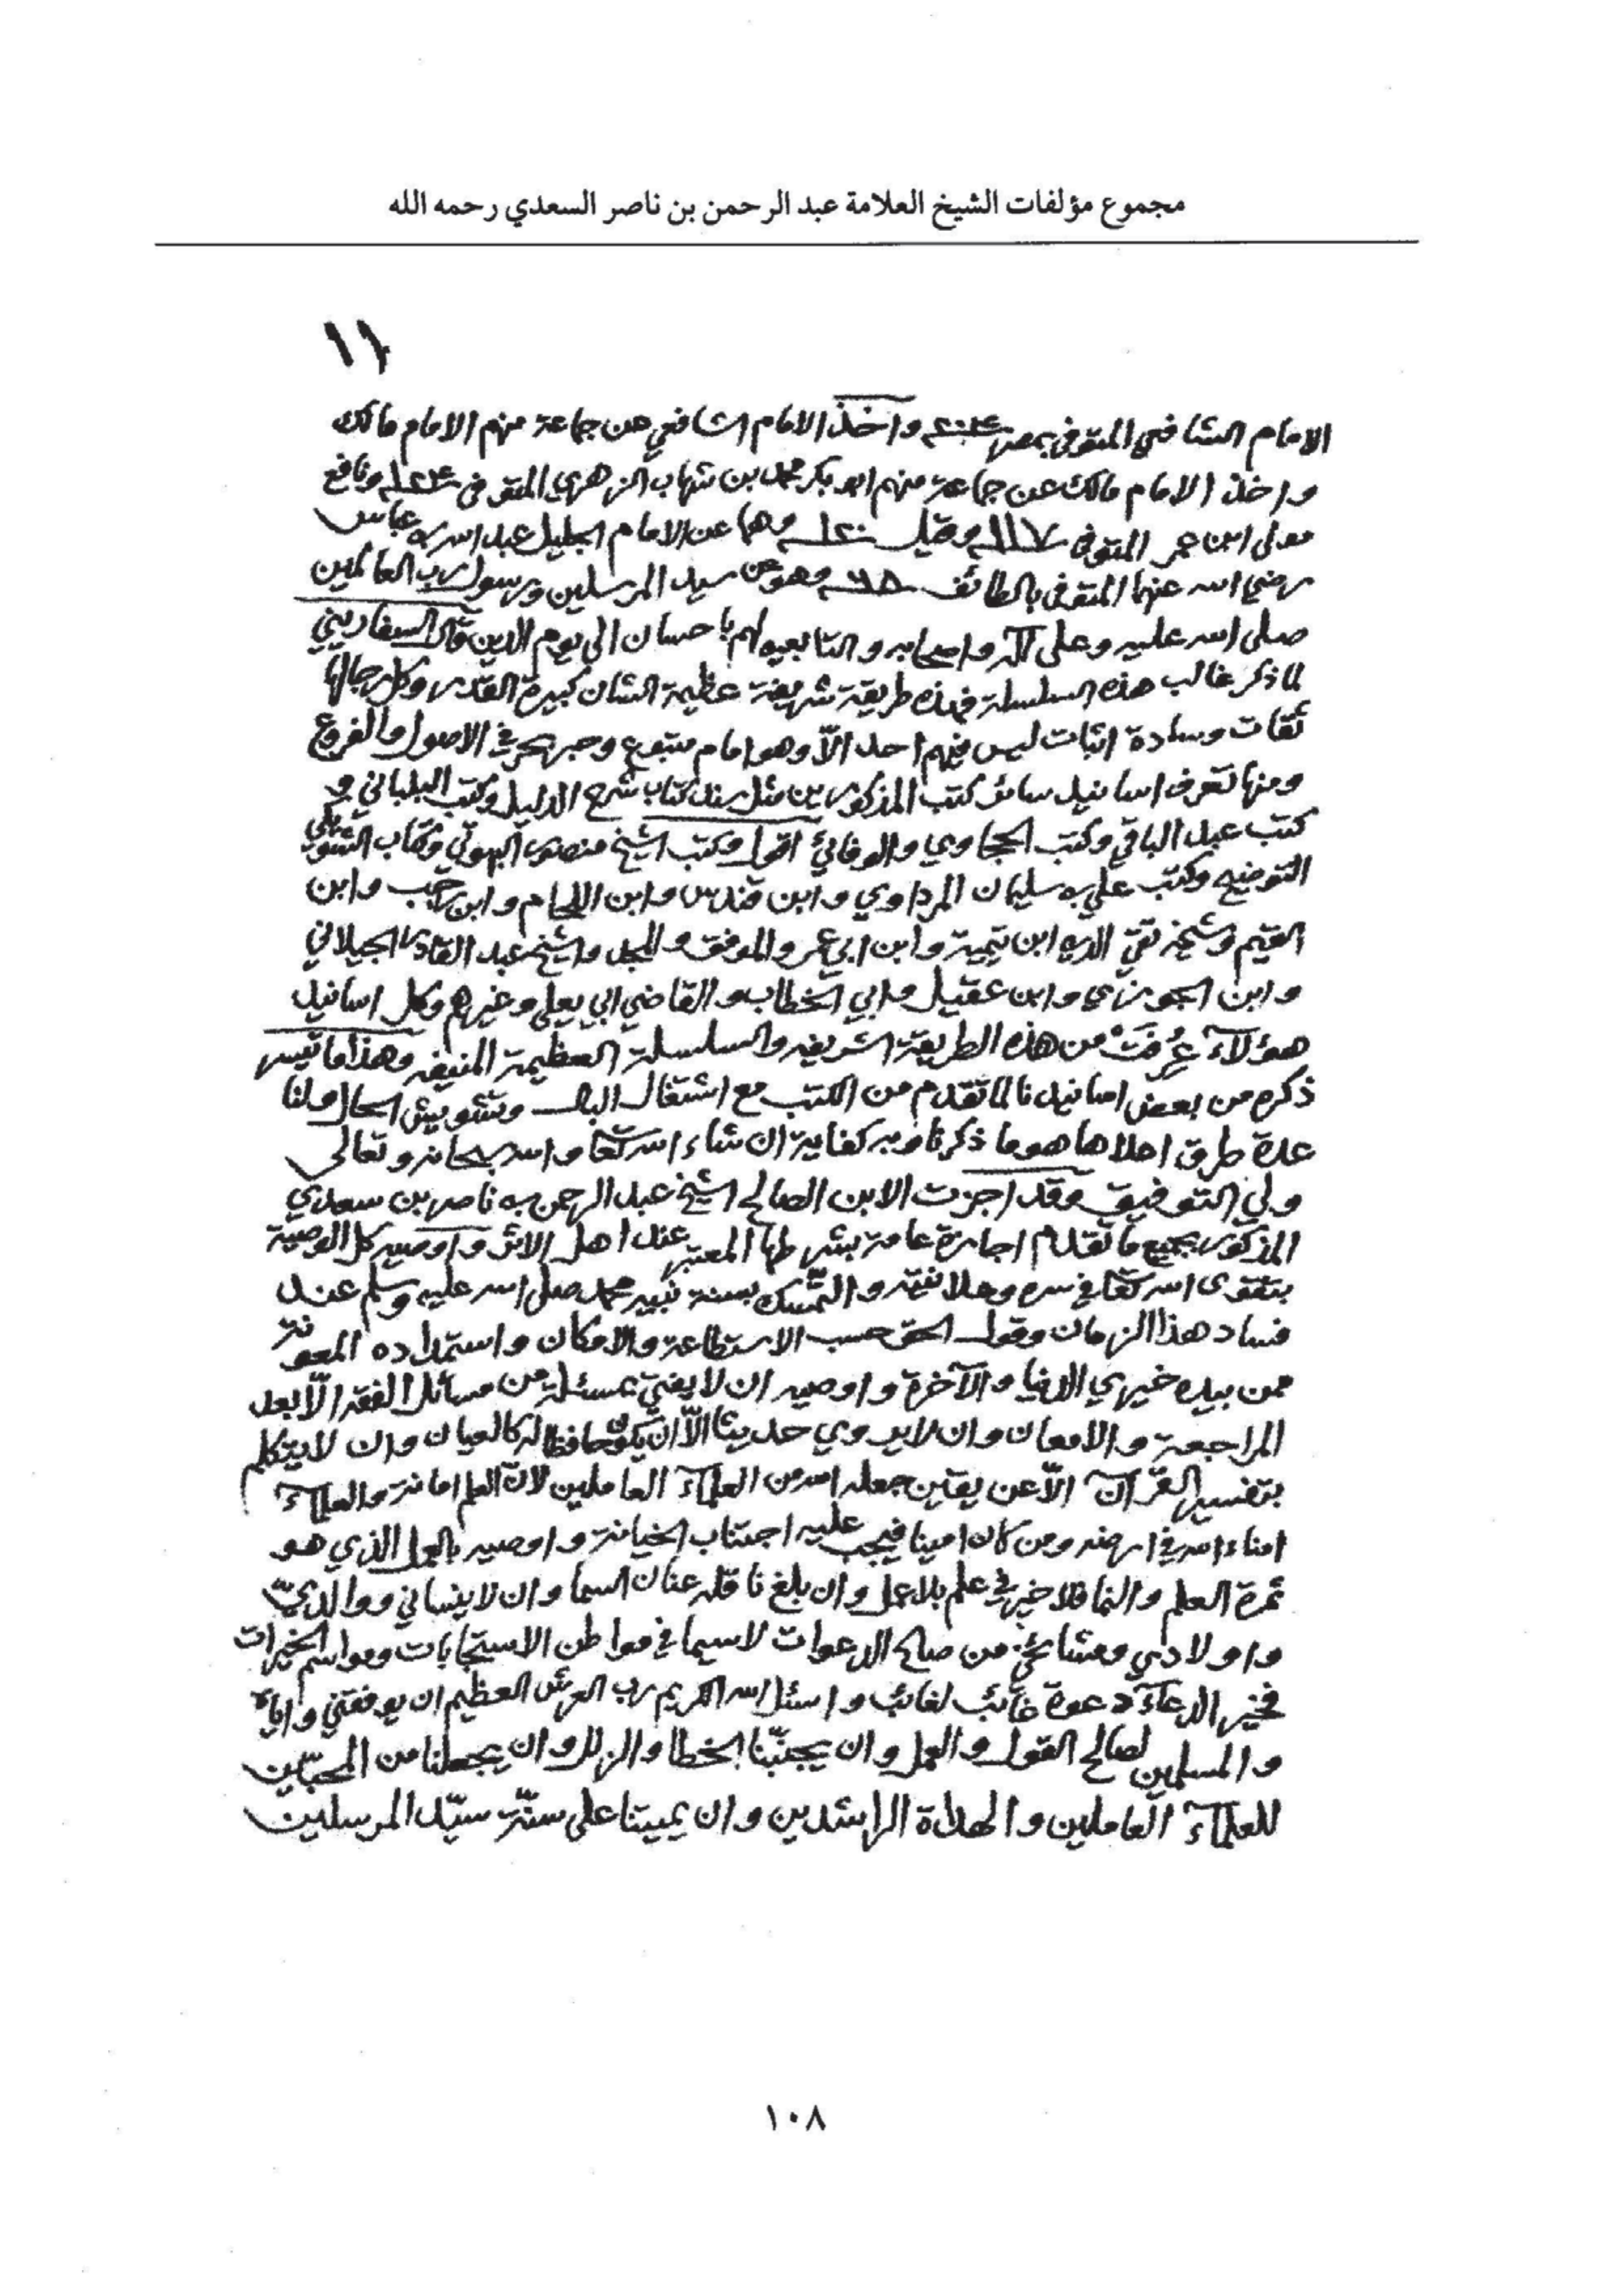 مجموع مؤلفات الشيخ العلامة عبد الرحمن بن ناصر السعدي رحمه الله
١١
الامام الشافعي المتوفى بمصر ٢٠٤ واخذ الامام الشافعي عن جماعة منهم الامام مالك
واخذ الامام مالك عن جماعة منهم ابو بكر محمد بن شهاب الزهري المتوفى ١٢٤ ونافع
مولى ابن عمر المتوفى ١١٧ وقيل ١٢٠ وهما عن الامام الجليل عبد الله بن عباس
رضي الله عنهما المتوفى بالطائف ٦٨ وهو عن سيد المرسلين ورسول رب العالمين
صلى الله عليه وعلى آله واصحابه والتابعين لهم باحسان الى يوم الدين قال السفاريني
لما ذكر غالب هذه السلسلة فهذه طريقة شريفة عظيمة الشان كبيرة القدر وكل رجالها
ثقات وسادة اثبات ليس فيهم احد الّا وهو امام متبوع وحبر بحر في الاصول والفروع
ومنها تعرف اسانيد سائر كتب المذكورين مثل سند كتاب شرح الدليل وكتب البلباني و
كتب عبد الباقي وكتب الحجاوي والوفائي اقول وكتب الشيخ منصور البهوتي وكتاب الشويكي
التوضيح وكتب علي بن سليمان المرداوي وابن قندس وابن اللحام وابن رجب وابن
القيم وشيخه تقي الدين ابن تيمية وابن ابي عمر والموفق والمجد والشيخ عبد القادر الجيلاني
وابن الجوزي وابن عقيل وابي الخطاب والقاضي ابي يعلى وغيرهم وكل اسانيد
هؤلآء عُرِفَتْ من هذه الطريقة الشريفه والسلسلة العظيمة المنيفه وهذا ما تيسر
ذكره من بعض اسانيدنا لما تقدم من الكتب مع اشتغال البال وتشويش الحال ولنا
عدة طرق احلاها هو ما ذكرنا وبه كفاية ان شاء الله تعا والله سبحانه وتعالى
ولي التوفيق وقد اجزت الابن الصالح الشيخ عبد الرحمن بن ناصر بن سعدي
المذكور بجميع ما تقدم اجازة عامة بشرطها المعتبر عند اهل الاثر واوصيه كل الوصية
بتقوى الله تعا في سره وعلانيته والتمّسك بسنة نبيه محمد صلى الله عليه وسلم عند
فساد هذا الزمان وقول الحق حسب الاستطاعة والامكان واستمداده المعونة
ممن بيده خيري الدنيا والآخرة واوصيه ان لا يفتي بمسئلة من مسائل الفقه الّا بعد
المراجعة والامعان وان لا يروي حديثا الّا ان يكون حافظا له كالعيان وان لا يتكلم
بتفسير القرآن الّا عن يقين جعله الله من العلمآء العاملين لانّ العلم امانة والعلمآء
امناء الله في ارضه ومن كان امينا فيجب عليه اجتناب الخيانة واوصيه بالعمل الذي هو
ثمرة العلم والنما فلا خير في علم بلا عمل وان بلغ ناقله عنان السما وان لا ينساني ووالديّ
واولادي ومشائخي من صالح الدعوات لاسيما في مواطن الاستجابات ومواسم الخيرات
فخير الدعآء دعوة غائب لغائب واسئل الله الكريم رب العرش العظيم ان يوفقني واياه
والمسلمين لصالح القول والعمل وان يجنبّنا الخطا والزلل وان يجعلنا من المحبّين
للعلمآء العاملين والهداة الراشدين وان يميتنا على سنّة سيّد المرسلين
١٠٨